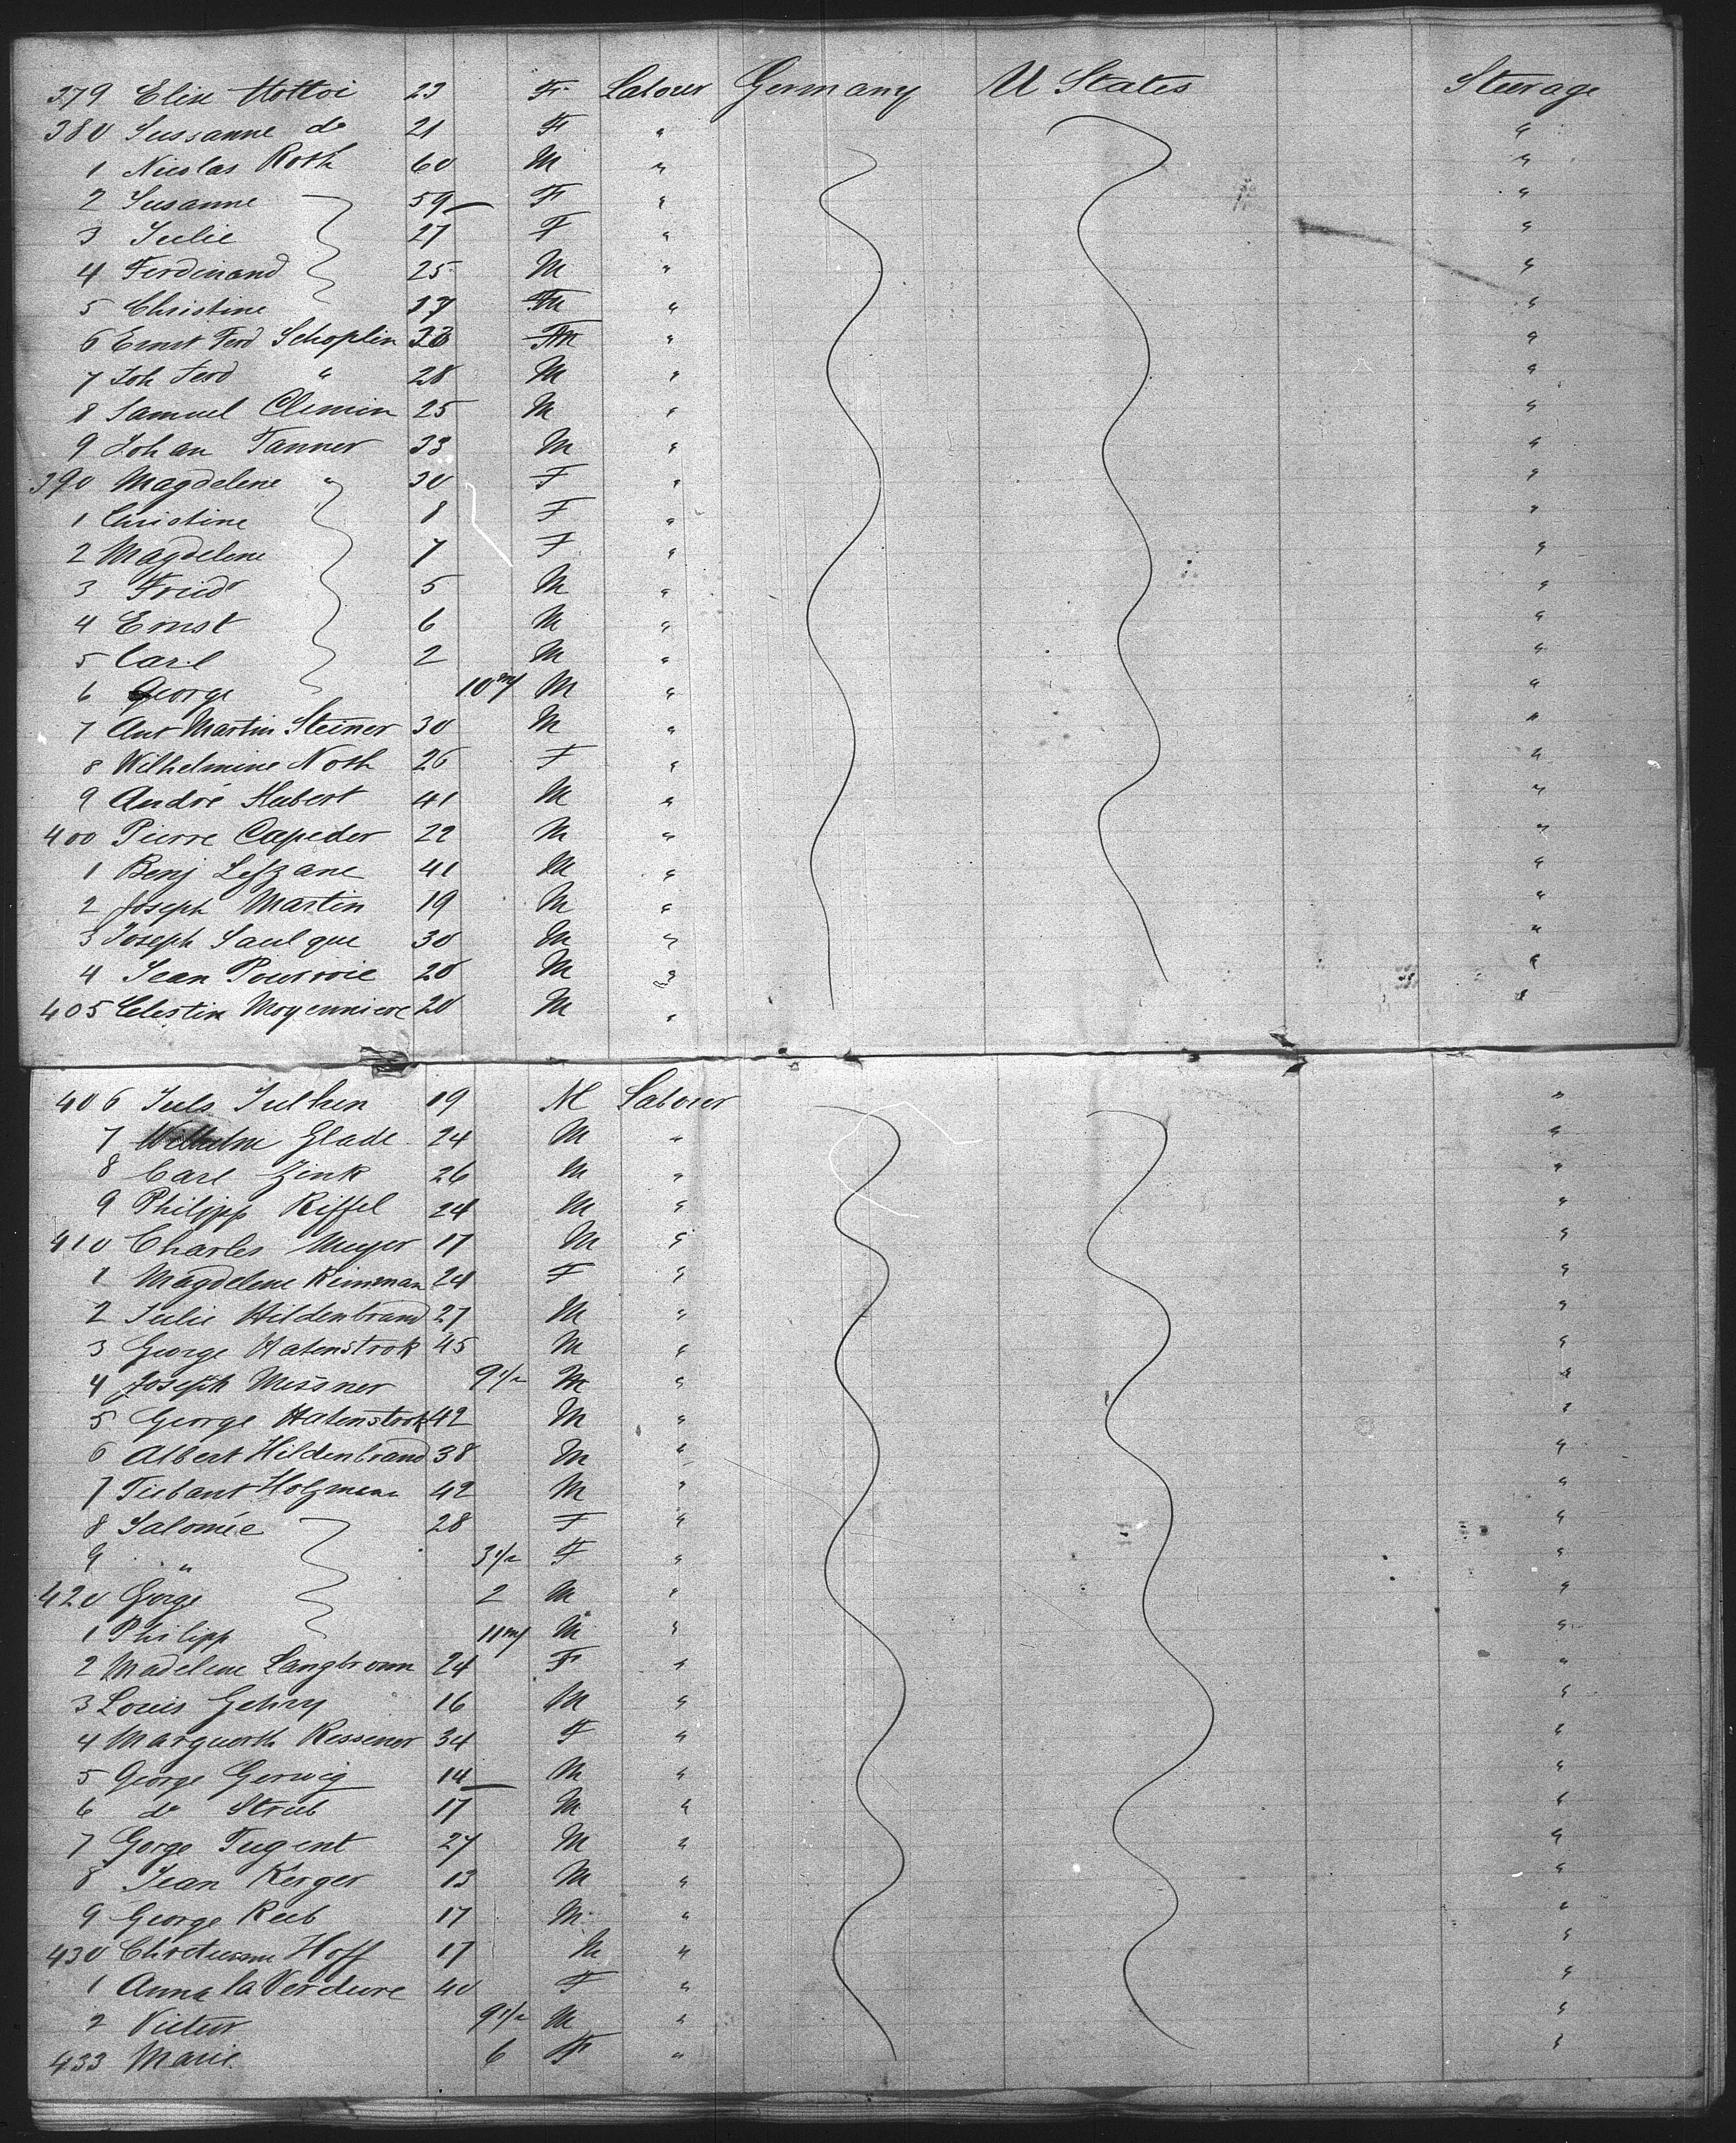 379 Elise Hottoi 23 F Labour Germany U States Steerage
380 Sussanne do 21 F " "
1 Nicolas Roth 60 M " "
2 Susanne 59 F " "
3 Julie 27 F " "
4 Ferdinand 25 M " "
5 Christine 17 " "
6 Ernst Ferd Schoplin " "
7 Joh Ferd " 28 M " "
8 Samuel Clemin 25 M " "
9 Johan Tanner 33 M " "
390 Magdelene " 30 F " "
1 Christine 8 F " "
2 Magdelene 7 F " "
3 Friedr 5 M " "
4 Ernst 6 M " "
5 Carl 2 M " "
6 George 10 m/ M " "
7 Ant Martin Steiner 30 M " "
8 Wilhelmine Noth 26 F " "
9 André Hubert 41 M " "
400 Pierre Capeder 22 M " "
1 Benj 41 M " "
2 Joseph Martin 19 M " "
3 Joseph Saulque 30 M " "
4 Jean 28 M " "
405 Celestin 20 M " "
406 Juls Julhen 19 M Labour "
7 Wilhelm Glade 24 M " "
8 Carl Zink 26 M " "
9 Philipp Riffel 24 M " "
410 Charles Meyer 17 M " "
1 Magdelene Reinman 24 F " "
2 Julie Hildenbrand 27 M " "
3 George Hatenstrok 45 M " "
4 Joseph Messner 9 1/2 M " "
5 George Hatenstrok 42 M " "
6 Albert Hildenbrand 38 M " "
7 Tiebant Holzman 42 M " "
8 Salomée 28 F " "
9 " 3 1/2 F " "
420 Gorge 2 M " "
1 Philipp 11 m/ M " "
2 Madelene Langbronn 24 F " "
3 Louis Gehry 16 M " "
4 Marguerth Ressener 34 F " "
5 George Gerwig 14 M " "
6 do Strub 17 M " "
7 Gorge Tugent 27 M " "
8 Jean Kerger 13 M " "
9 George Reeb 17 M " "
430 Hoff 17 M " "
1 Anna la Verdure 40 F " "
2 Victor 9 1/2 M " "
433 Marie 6 F " "